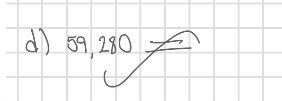 d) 59,280